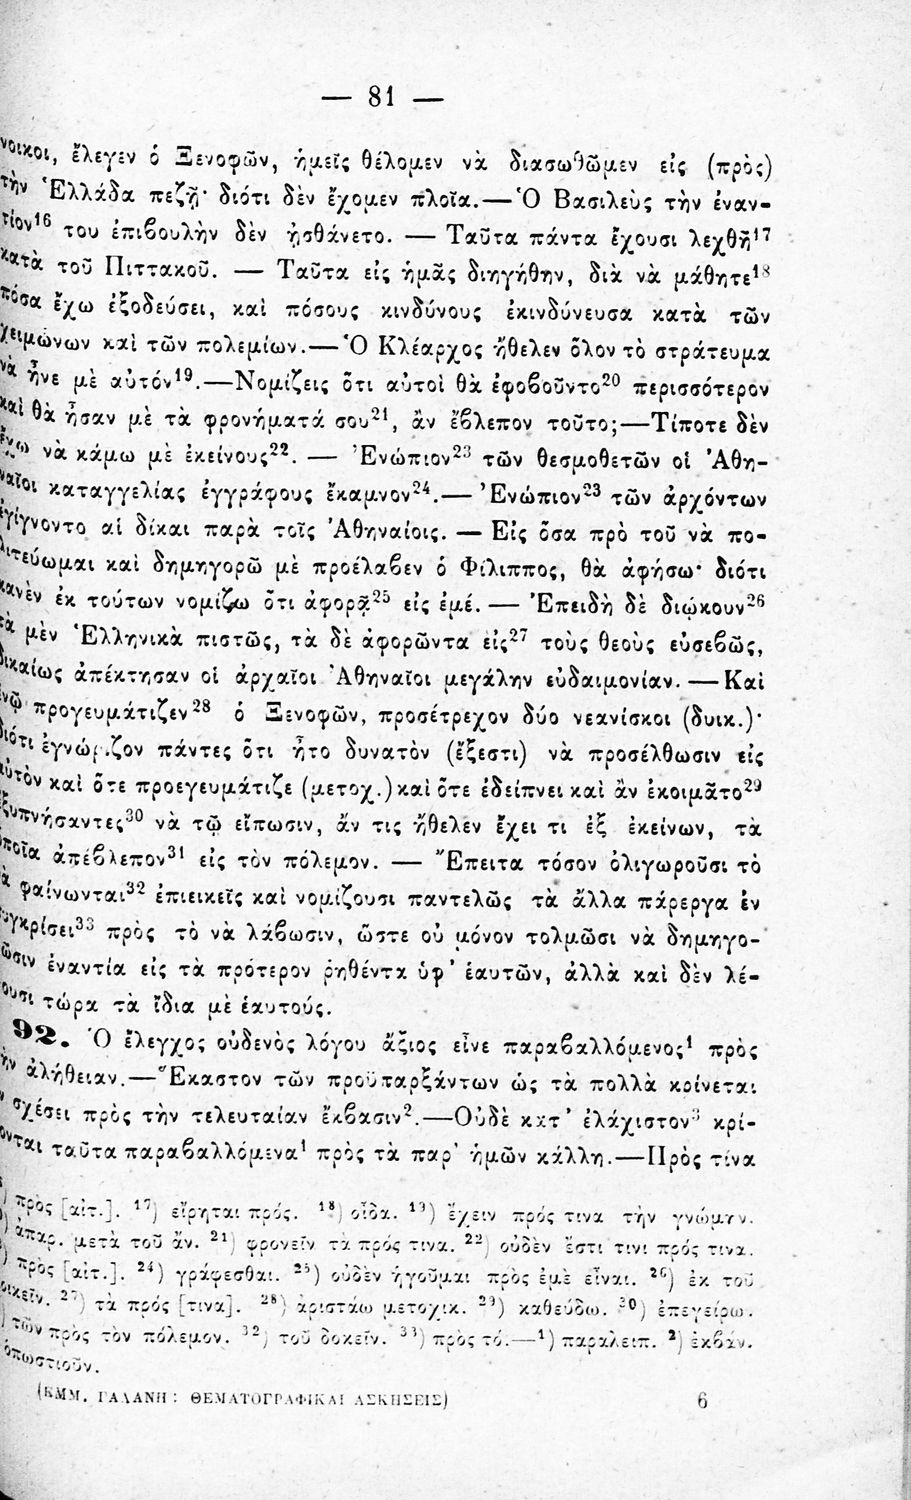 — 81 —
νοικοι, ἔλεγεν ὁ Ξενοφῶν, ἡμεῖς θέλομεν νὰ διασωθῶμεν εἰς (πρὸς)
τὴν Ἑλλάδα πεζῇ· διότι δὲν ἔχομεν πλοῖα.—Ὁ Βασιλεὺς τὴν ἐναν-
τίον¹⁶ του ἐπιβουλὴν δὲν ᾐσθάνετο. — Ταῦτα πάντα ἔχουσι λεχθῆ¹⁷
κατὰ τοῦ Πιττακοῦ. — Ταῦτα εἰς ἡμᾶς διηγήθην, διὰ νὰ μάθητε¹⁸
πόσα ἔχω ἐξοδεύσει, καὶ πόσους κινδύνους ἐκινδύνευσα κατὰ τῶν
χειμώνων καὶ τῶν πολεμίων.—Ὁ Κλέαρχος ἤθελεν ὅλον τὸ στράτευμα
νὰ ἦνε μὲ αὐτόν¹⁹.—Νομίζεις ὅτι αὐτοὶ θὰ ἐφοβοῦντο²⁰ περισσότερον
καὶ θὰ ἦσαν μὲ τὰ φρονήματά σου²¹, ἂν ἔβλεπον τοῦτο;—Τίποτε δὲν
ἔχω νὰ κάμω μὲ ἐκείνους²². — Ἐνώπιον²³ τῶν θεσμοθετῶν οἱ Ἀθη-
ναῖοι καταγγελίας ἐγγράφους ἔκαμνον²⁴.—Ἐνώπιον²³ τῶν ἀρχόντων
ἐγίγνοντο αἱ δίκαι παρὰ τοῖς Ἀθηναίοις. — Εἰς ὅσα πρὸ τοῦ νὰ πο-
λιτεύωμαι καὶ δημηγορῶ μὲ προέλαβεν ὁ Φίλιππος, θὰ ἀφήσω· διότι
κανὲν ἐκ τούτων νομίζω ὅτι ἀφορᾷ²⁵ εἰς ἐμέ. — Ἐπειδὴ δὲ διῴκουν²⁶
τὰ μὲν Ἑλληνικὰ πιστῶς, τὰ δὲ ἀφορῶντα εἰς²⁷ τοὺς θεοὺς εὐσεβῶς,
δικαίως ἀπέκτησαν οἱ ἀρχαῖοι Ἀθηναῖοι μεγάλην εὐδαιμονίαν. — Καὶ
ἐνῷ προγευμάτιζεν²⁸ ὁ Ξενοφῶν, προσέτρεχον δύο νεανίσκοι (δυικ.)·
διότι ἐγνώριζον πάντες ὅτι ἦτο δυνατὸν (ἔξεστι) νὰ προσέλθωσιν εἰς
αὐτὸν καὶ ὅτε προεγευμάτιζε (μετοχ.) καὶ ὅτε ἐδείπνει καὶ ἂν ἐκοιμᾶτο²⁹
ἐξυπνήσαντες³⁰ νὰ τῷ εἴπωσιν, ἄν τις ἤθελεν ἔχει τι ἐξ ἐκείνων, τὰ
ὁποῖα ἀπέβλεπον³¹ εἰς τὸν πόλεμον. — Ἔπειτα τόσον ὀλιγωροῦσι τὸ
νὰ φαίνωνται³² ἐπιεικεῖς καὶ νομίζουσι παντελῶς τὰ ἄλλα πάρεργα ἐν
συγκρίσει³³ πρὸς τὸ νὰ λάβωσιν, ὥστε οὐ μόνον τολμῶσι νὰ δημηγο-
ρῶσιν ἐναντία εἰς τὰ πρότερον ῥηθέντα ὑφ' ἑαυτῶν, ἀλλὰ καὶ δὲν λέ-
γουσι τώρα τὰ ἴδια μὲ ἑαυτούς.
92. Ὁ ἔλεγχος οὐδενὸς λόγου ἄξιος εἶνε παραβαλλόμενος¹ πρὸς
τὴν ἀλήθειαν.—Ἕκαστον τῶν προϋπαρξάντων ὡς τὰ πολλὰ κρίνεται
ἐν σχέσει πρὸς τὴν τελευταίαν ἔκβασιν².—Οὐδὲ κατ' ἐλάχιστον³ κρί-
νονται ταῦτα παραβαλλόμενα¹ πρὸς τὰ παρ' ἡμῶν κάλλη.—Πρὸς τίνα
πρὸς [αἰτ.]. ¹⁷) εἴρηται πρός. ¹⁸) οἶδα. ¹⁹) ἔχειν πρός τινα τὴν γνώμην.
ἀπαρ. μετὰ τοῦ ἄν. ²¹) φρονεῖν τὰ πρός τινα. ²²) οὐδὲν ἔστι τινι πρός τινα.
πρὸς [αἰτ.]. ²⁴) γράφεσθαι. ²⁵) οὐδὲν ἡγοῦμαι πρὸς ἐμὲ εἶναι. ²⁶) ἐκ τοῦ
οἰκεῖν. ²⁷) τὰ πρός [τινα]. ²⁸) ἀριστάω μετοχικ. ²⁹) καθεύδω. ³⁰) ἐπεγείρω.
τῶν πρὸς τὸν πόλεμον. ³²) τοῦ δοκεῖν. ³³) πρὸς τό.—¹) παραλειπ. ²) ἐκβάν.
ὁπωστιοῦν.
(ΕΜΜ. ΓΑΛΑΝΗ: ΘΕΜΑΤΟΓΡΑΦΙΚΑΙ ΑΣΚΗΣΕΙΣ) 6